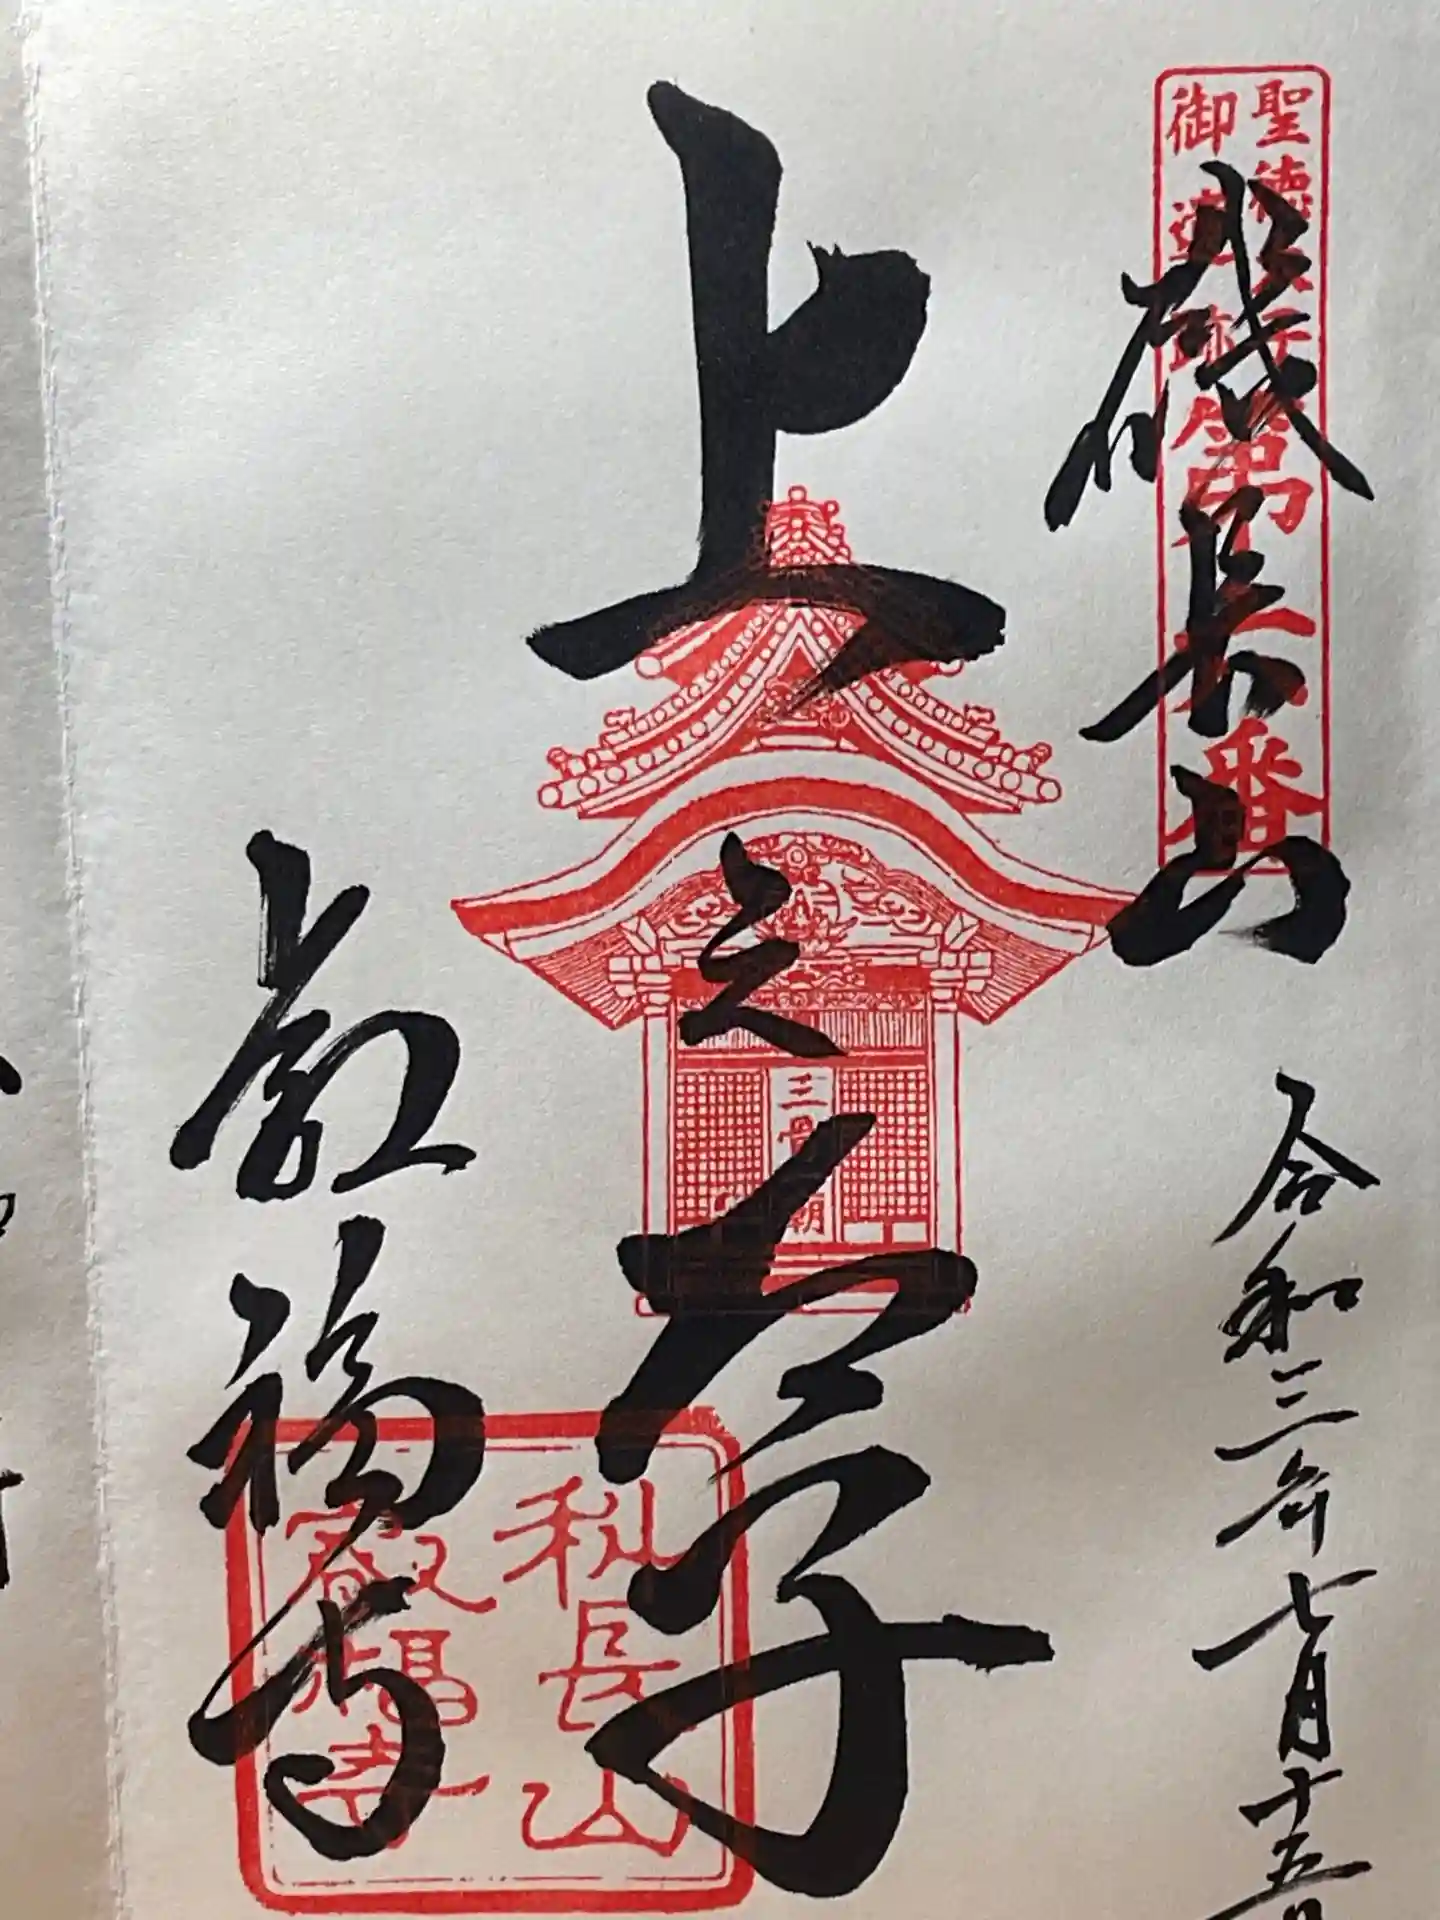 聖徳太子
御遺跡
第番
磯長山
令和三年七月十五日
上之太子
三骨一廟
叡福寺
科長山
叡福寺